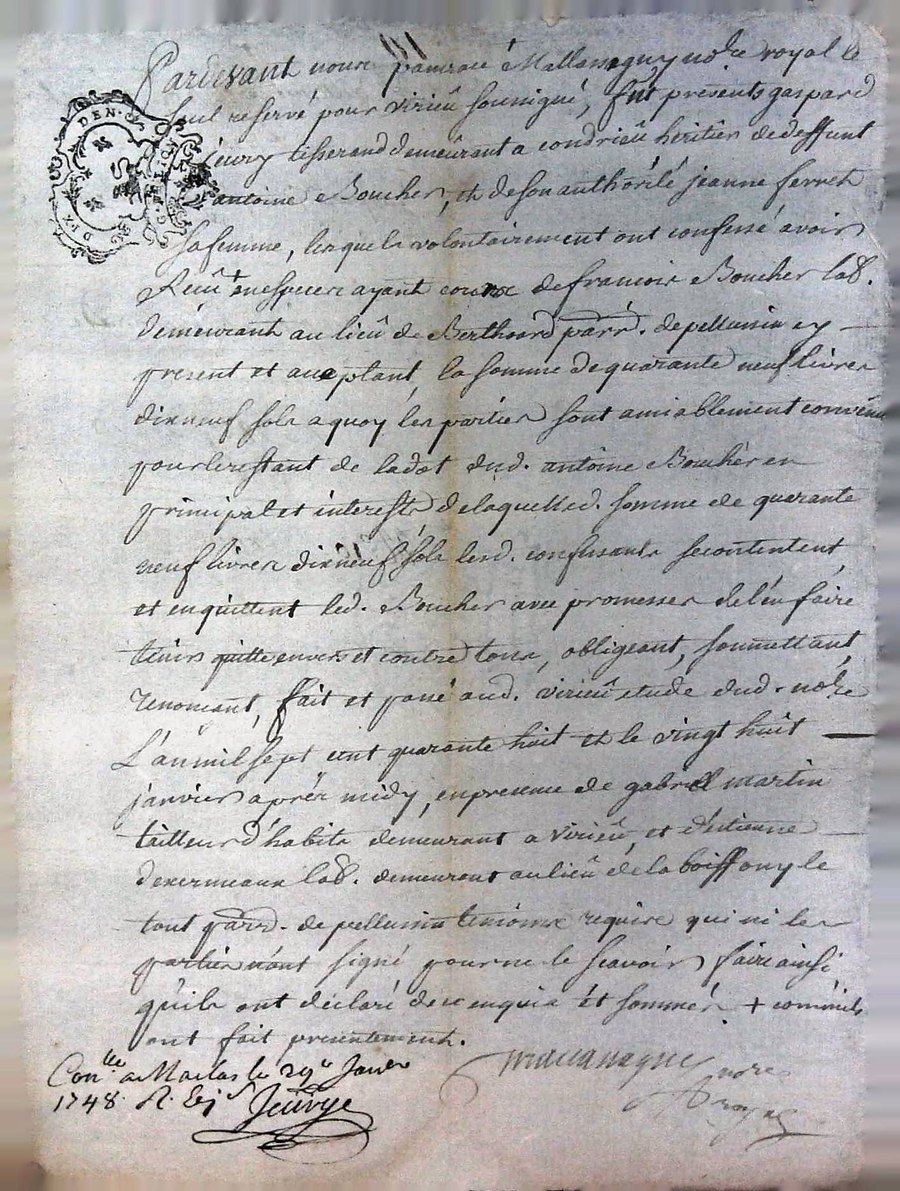 Pardevant nous françois Mallassagny no.re royal le
seul reservé pour virieû soussigné, fut presents gaspard
jeury tisserand demeûrant a condrieû heritier de deffunt
antoine Boucher, et de son authorité jeanne ferret
sa femme, lesquels volontairement ont confessé avoir
Receû + en especes ayant cours de francois Boucher lab.
demeurant au lieû de Berthoard parr. de pellussin cy
present et acceptant, la somme de quarante neuf livres
dixneuf sols a quoy les parties sont amiablement convenu
pour le restant de la dot dud. antoine Boucher en
principal et interests de laquelled. somme de quarante
neuf livres dixneuf sols lesd. confessants se contentent
et en quittent led. Boucher avec promesses de l'en faire
tenir quitte envers et contre tous, obligeant, soumettant,
renonçant, fait et passé aud. virieû etude dud. no.re
L'an mil sept cent quarante huit et le vingt huit
janvier après midy, en presence de gabriel martin
tailleur d'habits demeurant a virieû, et d'estienne
lab. demeurant au lieû de la boissony le
tout parr. de pellussin temoins requis qui ni les
parties n'ont signé pour ne le scavoir faire ainsi
qu'ils ont declaré de ce enquis et sommés + comme ils
ont fait presentement.
no.re
royal
Con.lle a Maclas le 29.e Janvier
1748. R.
DEN.